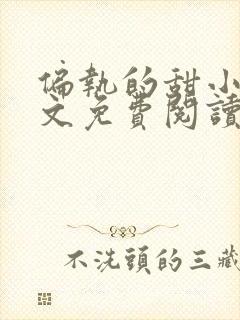 偏執的甜小
文免費閱讀
不洗頭的三藏